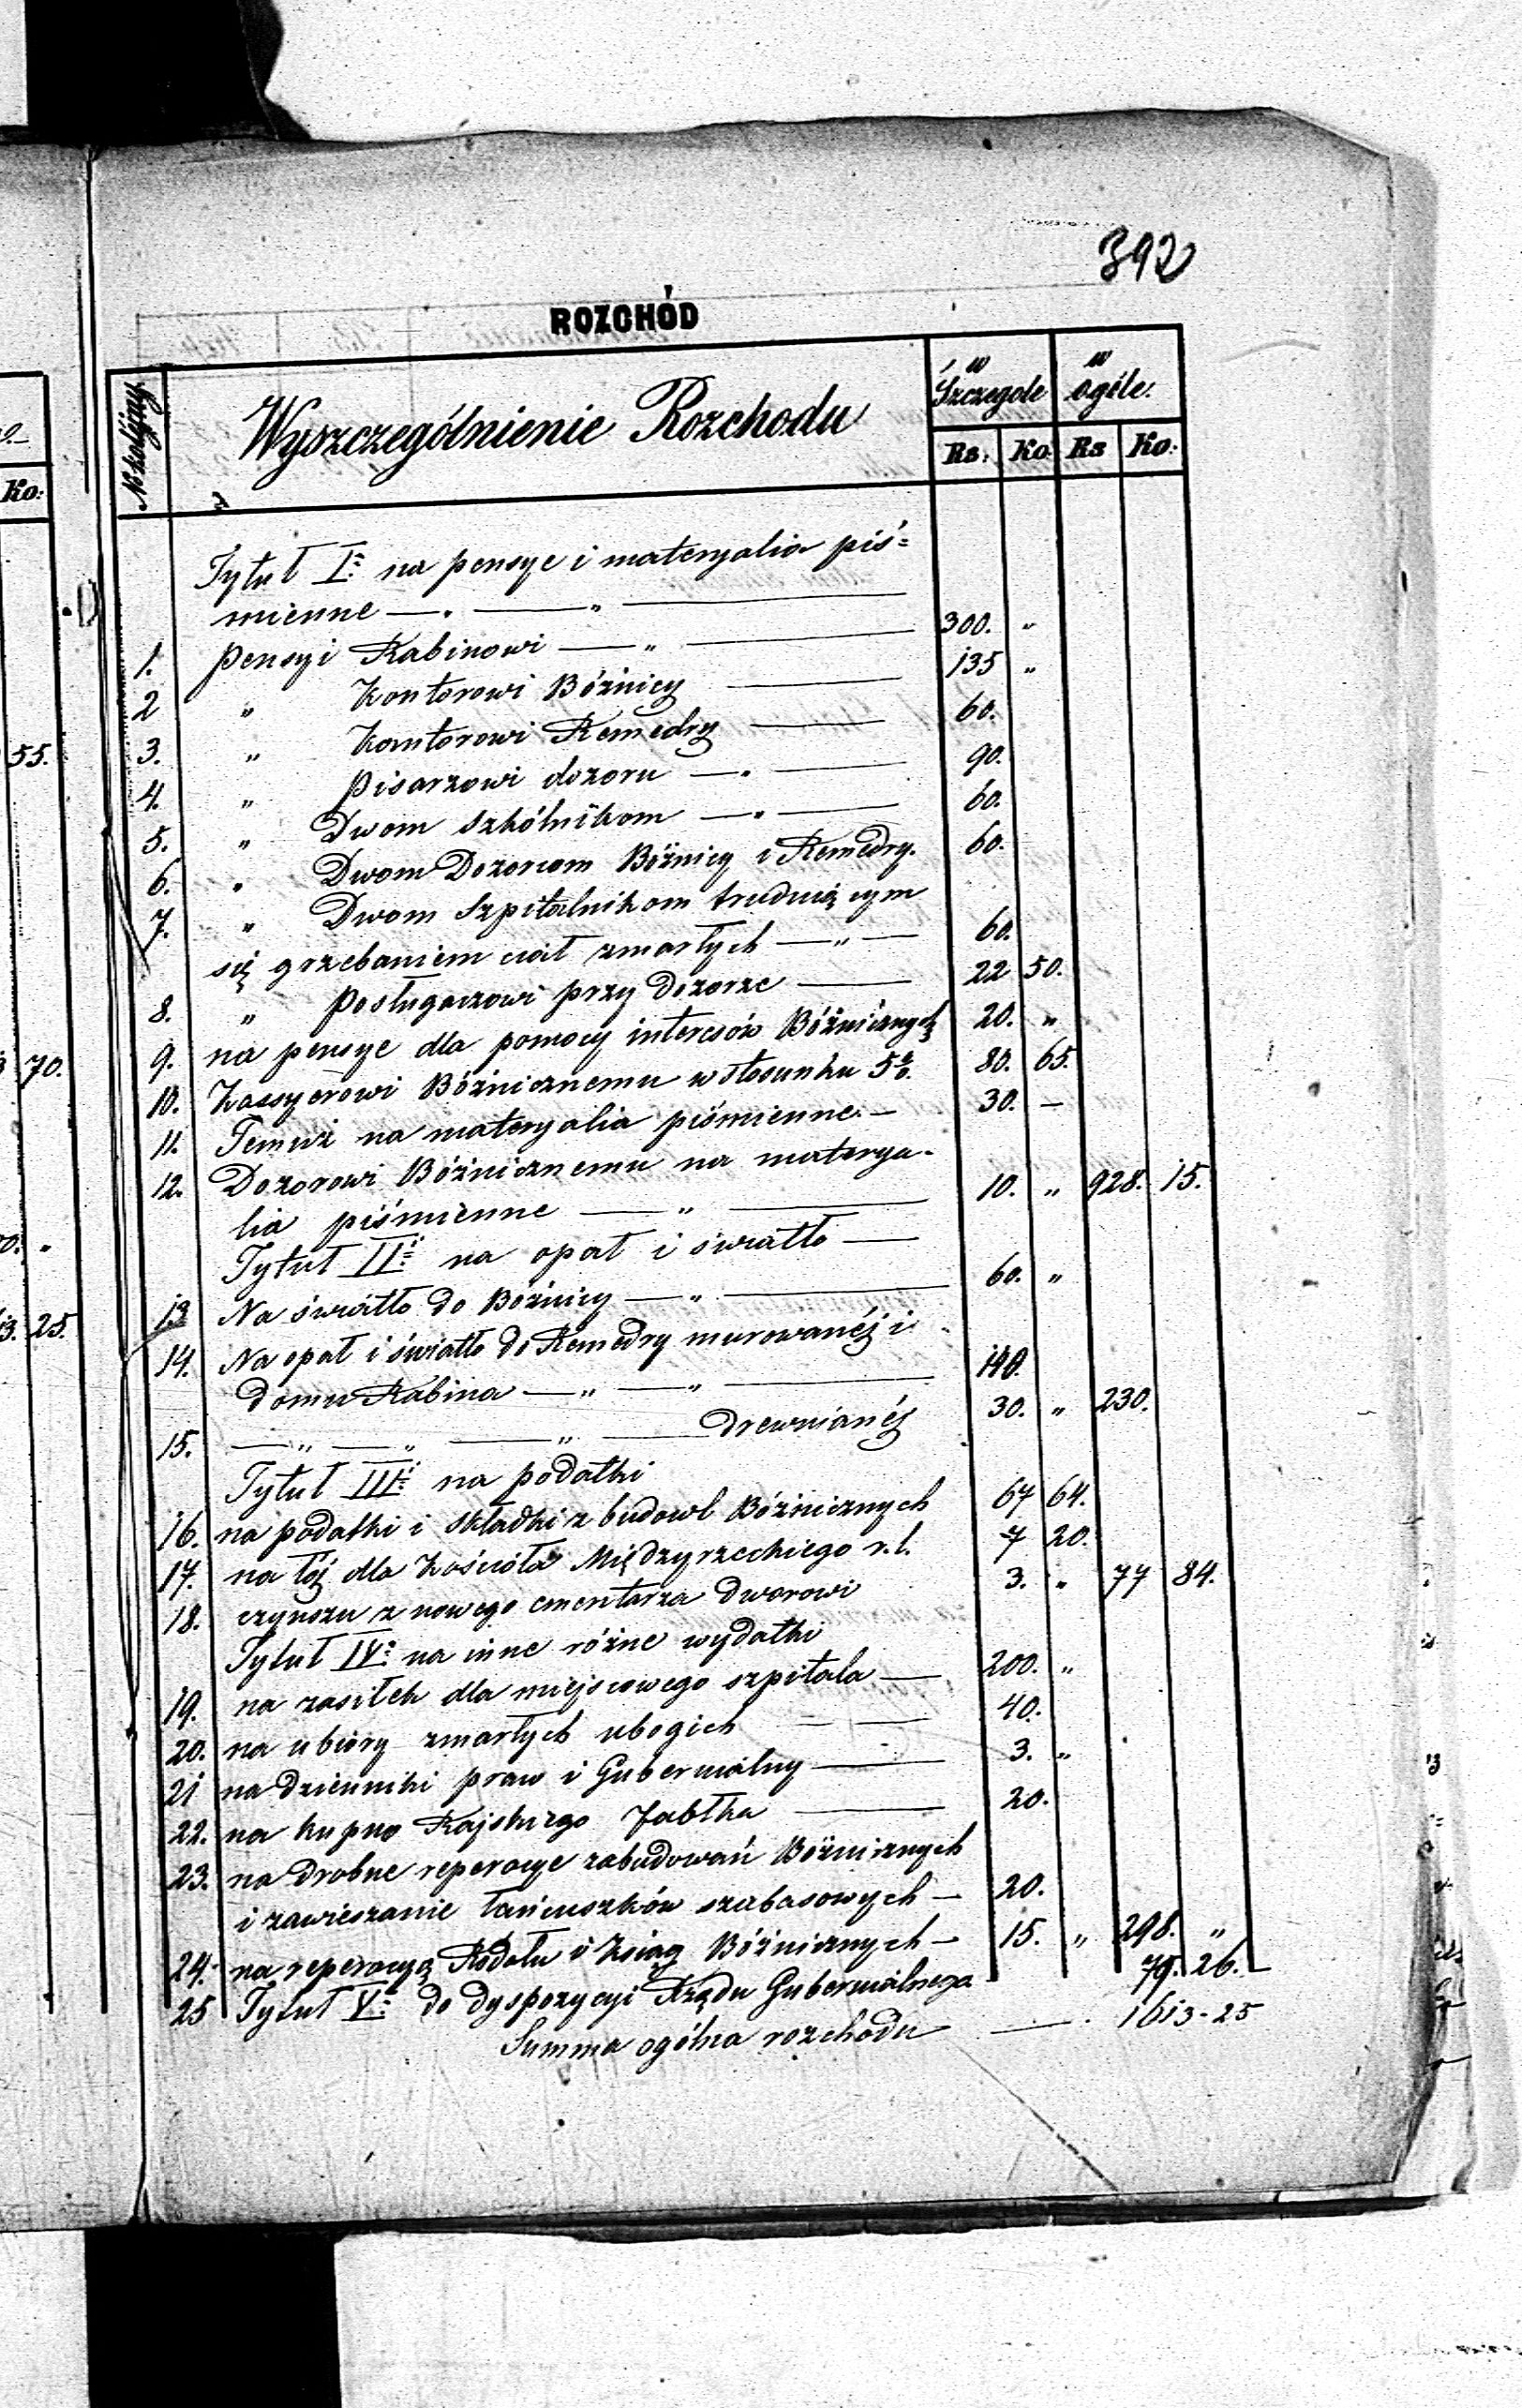 392
ROZCHÓD
No kolejny
Wyszczególnienie Rozchodu
w Szczególe
w ogóle.
Rs. Ko. Rs Ko.
Ko:
Tytuł I: na pensye i materyalia piś=
mienne — . — „ —
1. Pensyi Rabinowi — „ — 300. „
2 „ Kantorowi Bóżnicy — 135 „
3. „ Kantorowi Remedry — 60.
4. „ Pisarzowi dozoru — . — 90.
5. „ Dwom Szkólnikom — . — 60.
6. „ Dwom Dozorcom Bóżnicy i Remedry. 60.
7. „ Dwom Szpitalnikom trudniącym
się grzebaniem ciał zmarłych — „ — 60.
8. „ Posługaczowi przy Dozorze — 22 50.
9. na pensye dla pomocy interesów Bóżnicznych 20. „
10. Kassyerowi Bóżnicznemu w stosunku 5%. 80. 65.
11. Temuż na materyalia piśmienne. — 30. —
12. Dozorowi Bóżnicznemu na materya-
lia piśmienne — „ — 10. „ 928. 15.
Tytuł II: na opał i światło —
13 Na światło do Bóżnicy — „ — 60. „
14. Na opał i światło do Remedry murowanéj i
domu Rabina — „ — „ — 140.
15. — „ — „ — „ — drewnianéj 30. „ 230.
Tytuł III: na podatki
16. na podatki i składki z budowl Bóżnicznych 67 64.
17. na łój dla Kościoła Międzyrzeckiego r.l. 7 20.
18. czynszu z nowego cmentarza dworowi 3. „ 77 84.
Tytuł IV: na inne różne wydatki
19. na zasiłek dla miejscowego szpitala — 200. „
20. na ubiory zmarłych ubogich — — 40.
21 na dzienniki praw i Gubernialny — 3. „
22. na kupno Rajskiego Jabłka — 20.
23. na drobne reperacye zabudowań Bóżnicznych
i zawieszanie łańcuszków szabasowych — 20.
24. na reperacyą Rodału i Ksiąg Bóżnicznych — 15. „ 298. „
25 Tytuł V: do dyspozycyi Rządu Gubernialnego 79. 26. —
Summa ogólna rozchodu — . 1613 - 25
55.
70.
25.